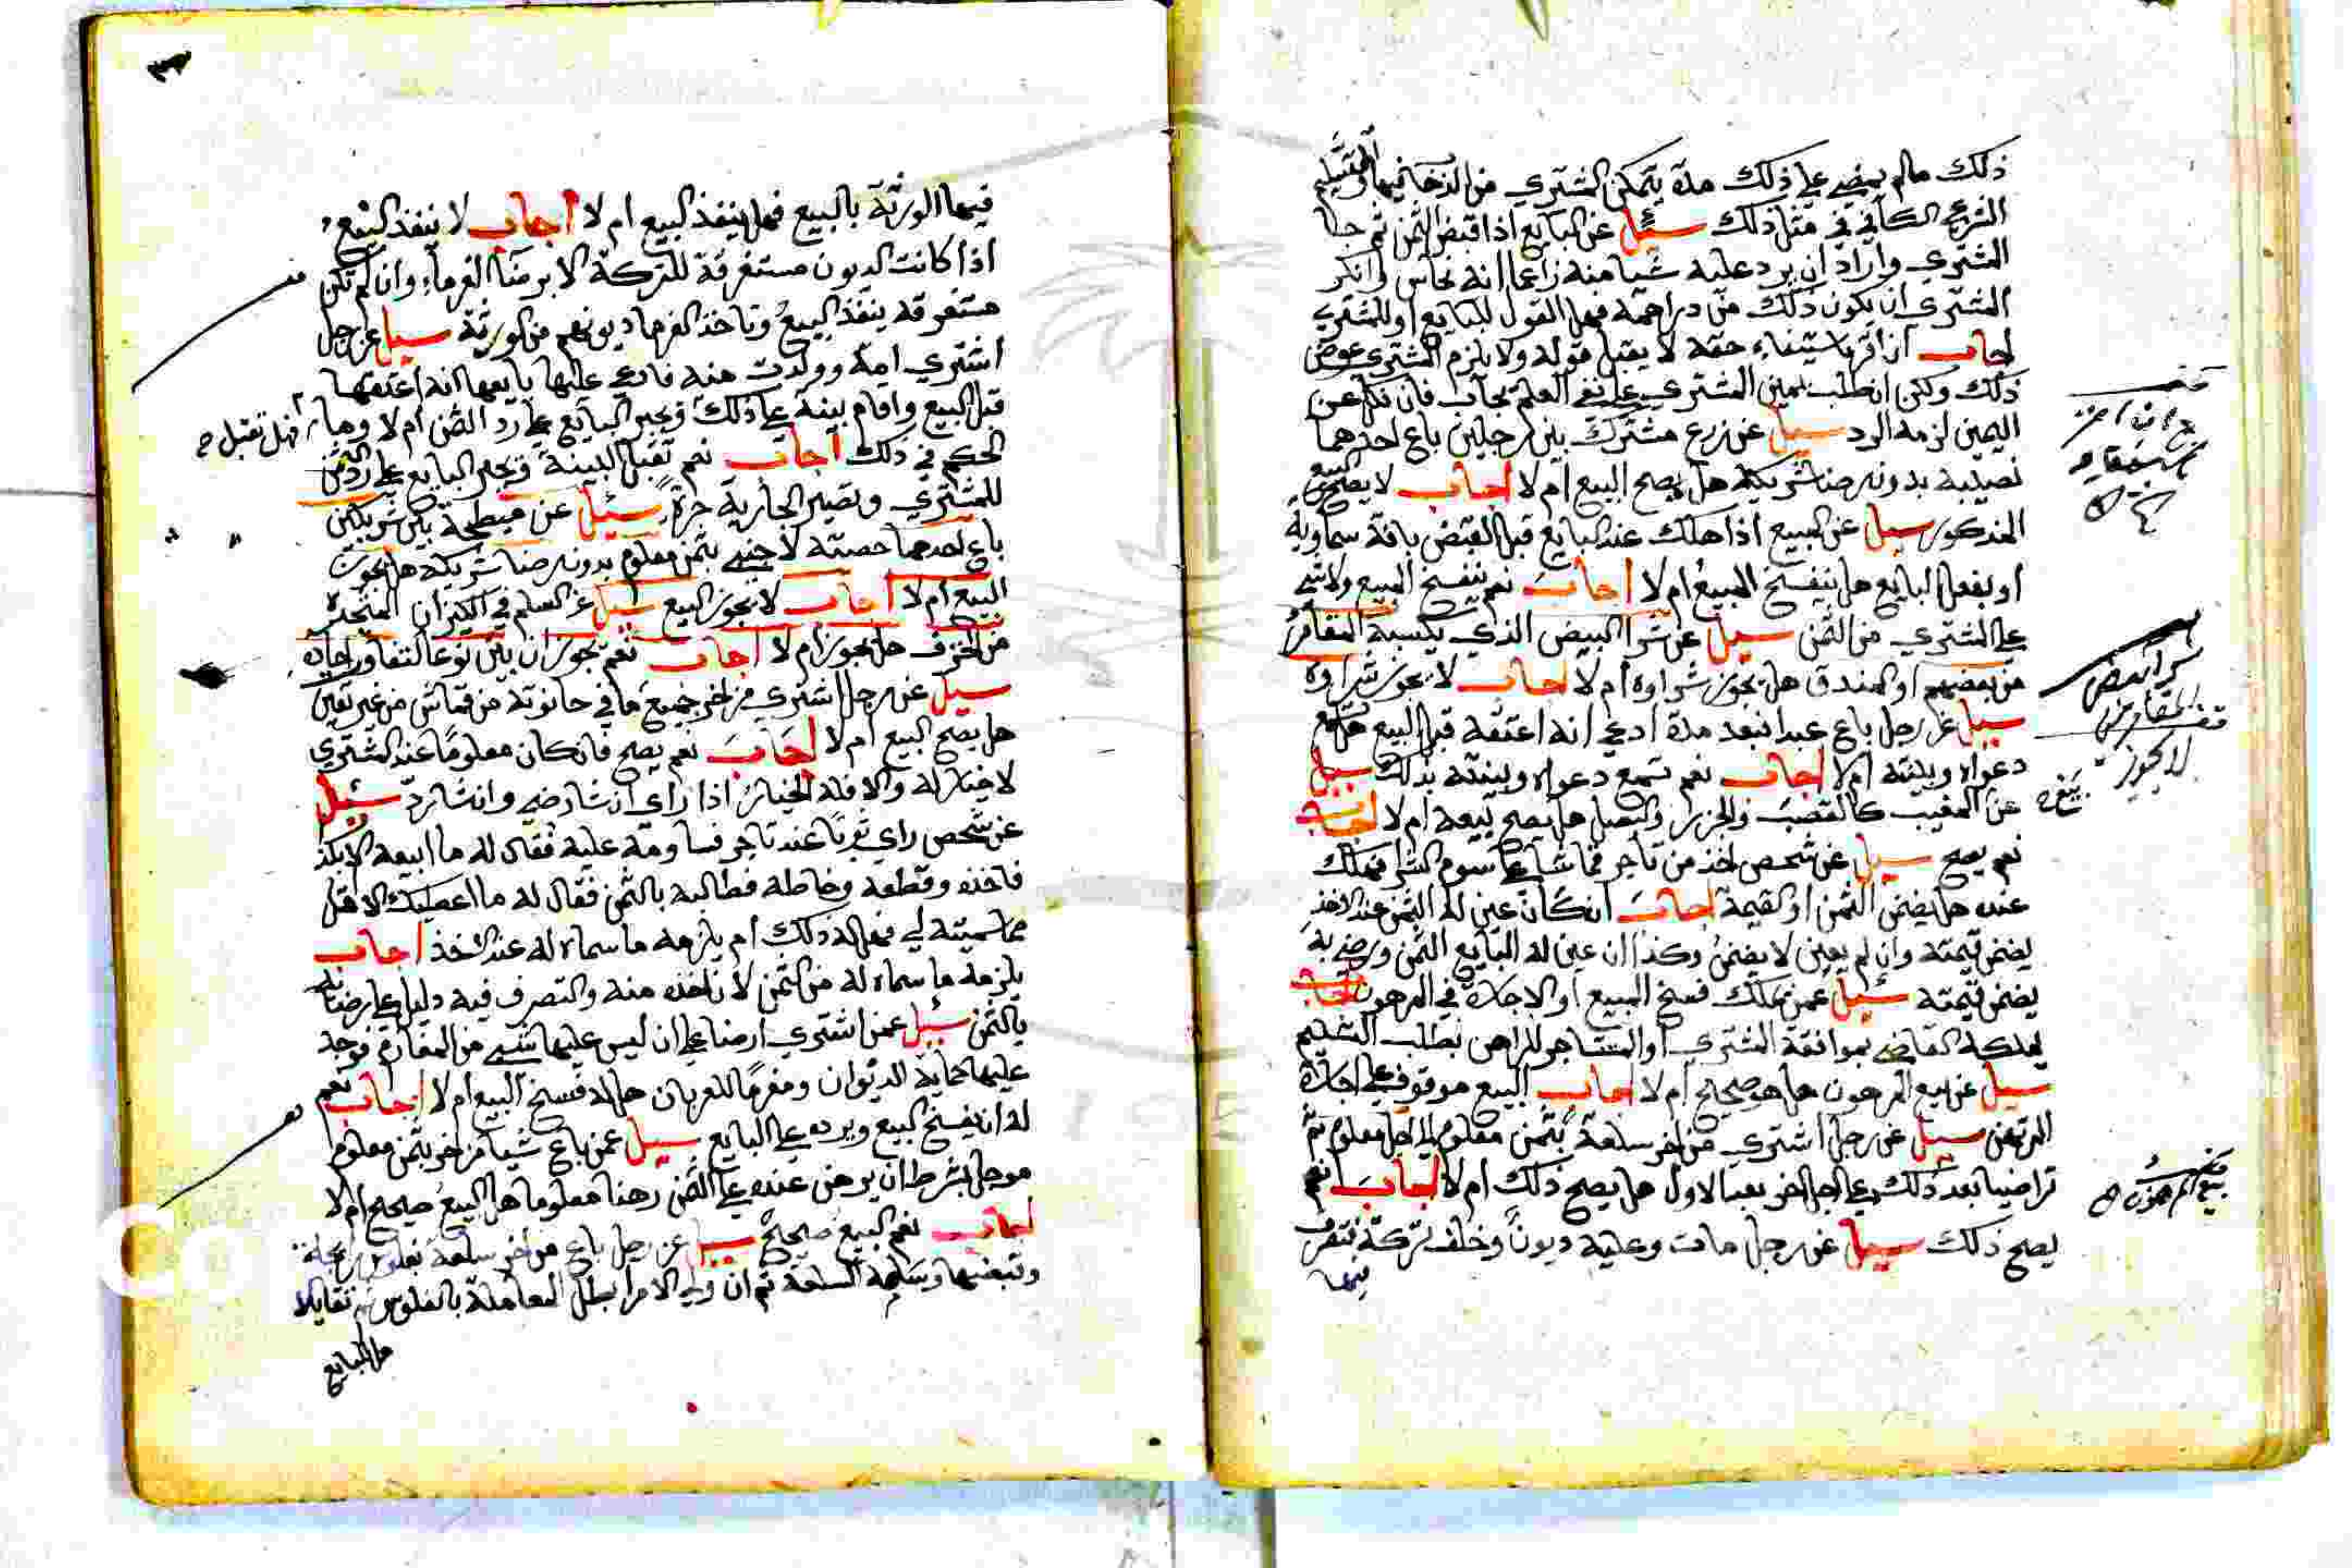 ذلك مالم يمضي على ذلك مدة يتمكن المشتري من الدخول فيها والتسليم
الشرعي الكافي في مثل ذلك سئيل عن البايع اذا قبض الثمن ثم جا
المشتري واراد ان يرد عليه شيا منه زاعما انه نحاس وانكر
المشتري ان يكون ذلك من دراهمه فهل القول للبايع او للمشتري
اجاب ان اقر باستيفاء حقه لا يقبل قوله ولا يلزم المشتري عوض
ذلك ولكن ان طلب يمين المشتري على نفي العلم يجاب فان نكل عن
اليمين لزمه الرد سيل عن زرع مشترك بين رجلين باع احدهما
نصيبه بدون رضا شريكه هل يصح البيع ام لا اجاب لا يصح البيع
المذكور سيل عن المبيع اذا هلك عند البايع قبل القبض بافة سماوية
او بفعل البايع هل ينفسخ المبيع ام لا اجاب نعم ينفسخ المبيع ولا شي
على المشتري من الثمن سيل عن شرا البيض الذي يكسبه المقامر
من بعضهم او البندق هل يجوز شراوه ام لا اجاب لا يجوز شراوه
سيل عن رجل باع عبدا فبعد مدة ادعى انه اعتقه قبل البيع هل تسمع
دعواه وبينته ام لا اجاب نعم تسمع دعواه وبينته بذلك سيل
عن المغيب كالقصب والجزر والبصل هل يصح بيعه ام لا اجاب
نعم يصح سيل عن شخص اخذ من تاجر قماشا على سوم الشرا فهلك
عنده هل يضمن الثمن او القيمة اجاب ان كان عين له الثمن عند الاخذ
يضمن قيمته وان لم يعين لا يضمن وكذا ان عين له البايع الثمن ورضي به
يضمن قيمته سئيل عمن يملك فسخ المبيع او الاجارة في المرهون اجاب
يملكه القاضي بموافقة المشتري او المستاجر للراهن بطلب التسليم
سيل عن بيع المرهون هل هو صحيح ام لا اجاب البيع موقوف على اجازة
المرتهن سيل عن رجل اشترى من اخر سلعة بثمن معلوم الى اجل معلوم ثم
تراضيا بعد ذلك على اجل اخر بعد الاول هل يصح ذلك ام لا اجاب نعم
يصح ذلك سيل عن رجل مات وعليه ديون وخلف تركة فتصرف
فيها
شرا البيض
المقامر
لا يجوز
بيع المرهون
فيها الورثة بالبيع فهل ينفذ البيع ام لا اجاب لا ينفذ البيع
اذا كانت الديون مستغرقة للتركة الا برضا الغرماء وان لم تكن
مستغرقه ينفذ البيع وتاخذ الغرما ديونهم من الورثة سيل عن رجل
اشترى امة وولدت منه فادعى عليها بايعها انه اعتقها
قبل البيع واقام بينة على ذلك ويجبر البايع على رد الثمن ام لا وما
فهل تقبل صح
الحكم في ذلك اجاب نعم تقبل البينة ويجبر البايع على رد الثمن
للمشتري وتصير الجارية حرة سئيل عن مبطخة بين شريكين
باع احدهما حصته لاجنبي بثمن معلوم بدون رضا شريكه هل يجوز
البيع ام لا اجاب لا يجوز البيع سيل عن السلم في الكيزان المتخذة
من الخزف هل يجوز ام لا اجاب نعم يجوز ان بين نوعا لتفاوت احاده
سيل عن رجل اشترى من اخر جميع ما في حانوته من قماش من غير تعيين
هل يصح البيع ام لا اجاب نعم يصح فان كان معلوما عند المشتري
لا خيار له والا فله الخيار اذا راى ان شا رضي وان شا رد سئيل
عن شخص راى ثوبا عند تاجر فساومه عليه فقال له ما ابيعه الا بكذا
فاخذه وقطعه وخاطه فطالبه بالثمن فقال له ما اعطيك الا اقل
مما سميته لي فهل له ذلك ام يلزمه ما سماه له عند الاخذ اجاب
يلزمه ما سماه له من الثمن لان اخذه منه والتصرف فيه دليل على رضائه
بالثمن سئيل عمن اشترى ارضا على ان ليس عليها شيي من المغارم فوجد
عليها حماية الديوان ومغرما للعربان هل له فسخ البيع ام لا اجاب نعم
له ان يفسخ البيع ويرده على البايع سيل عمن باع شيا من اخر بثمن معلوم
موجل بشرط ان يرهن عنده على الثمن رهنا معلوما هل البيع صحيح ام لا
اجاب نعم البيع صحيح سيل عن رجل باع من اخر سلعة بفلوس رايجة
وقبضها وسلمه السلعة ثم ان ولي الامر ابطل المعاملة بالفلوس ثم تقايلا
هل للبايع